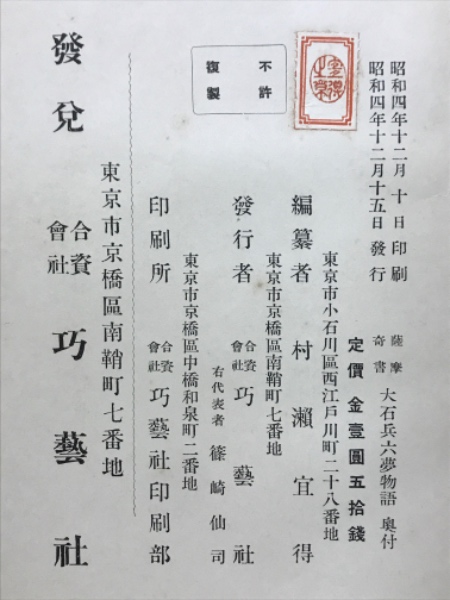 昭和四年十二月十日印刷
昭和四年十二月十五日發行
薩摩奇書 大石兵六夢物語 奥付
定價 金壹圓五拾錢
不許複製
東京市小石川區西江戶川町二十八番地
編纂者 村瀨宜得
東京市京橋區南鞘町七番地
發行者 合資會社 巧藝社
右代表者 篠崎仙司
東京市京橋區中橋和泉町二番地
印刷所 合資會社 巧藝社印刷部
東京市京橋區南鞘町七番地
發兌 合資會社 巧藝社